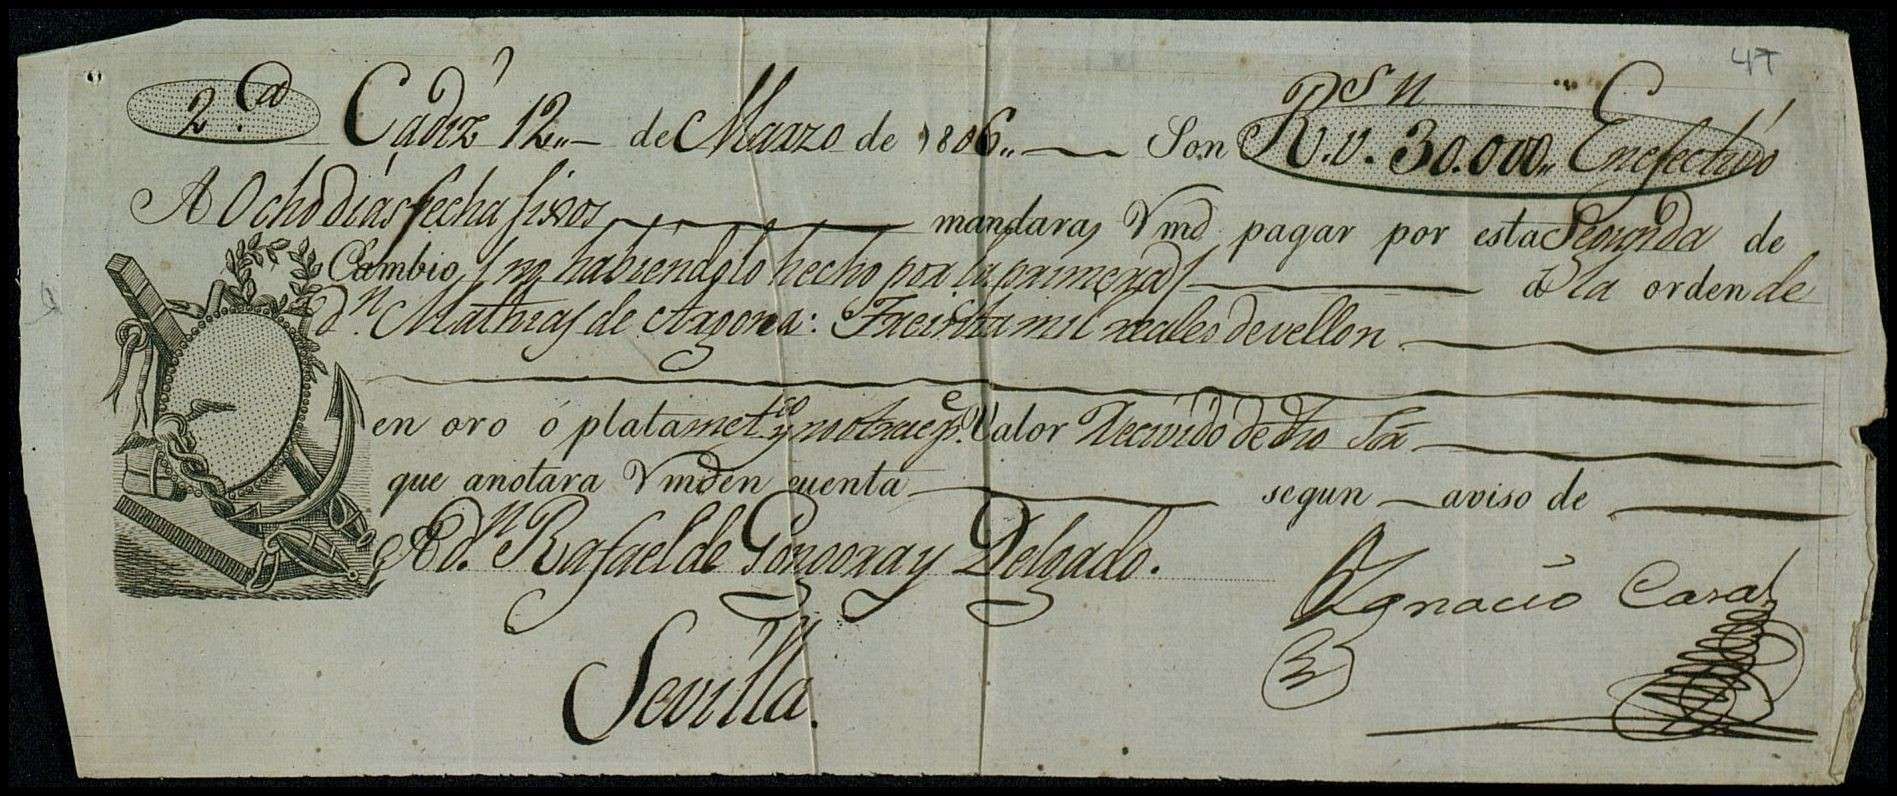 47
2.da Cadiz 12,, de Marzo de 1806,, Son Rsn v. 30.000,, Enefectivo
A Ocho dias fecha fixos mandara Vmd pagar por esta Segunda de
Cambio, (no habiendolo hecho por la primera) á la orden de
Dn. Mathias de Aragona: Treinta mil reales de vellon
en oro ó plata metco y no otra espe. Valor Recivido de dho Sor
que anotara Vmd en cuenta segun aviso de
A Dn. Rafael de Gongora y Delgado.
Ignacio Casal
Sevilla.